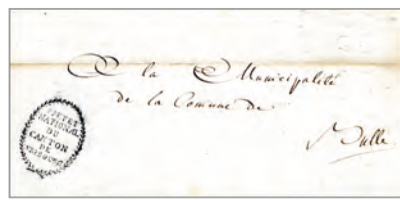 A la Municipalité
de la Comune de
Bulle
PREFET
NATIONAL
DU
CANTON
DE
FRIBOURG